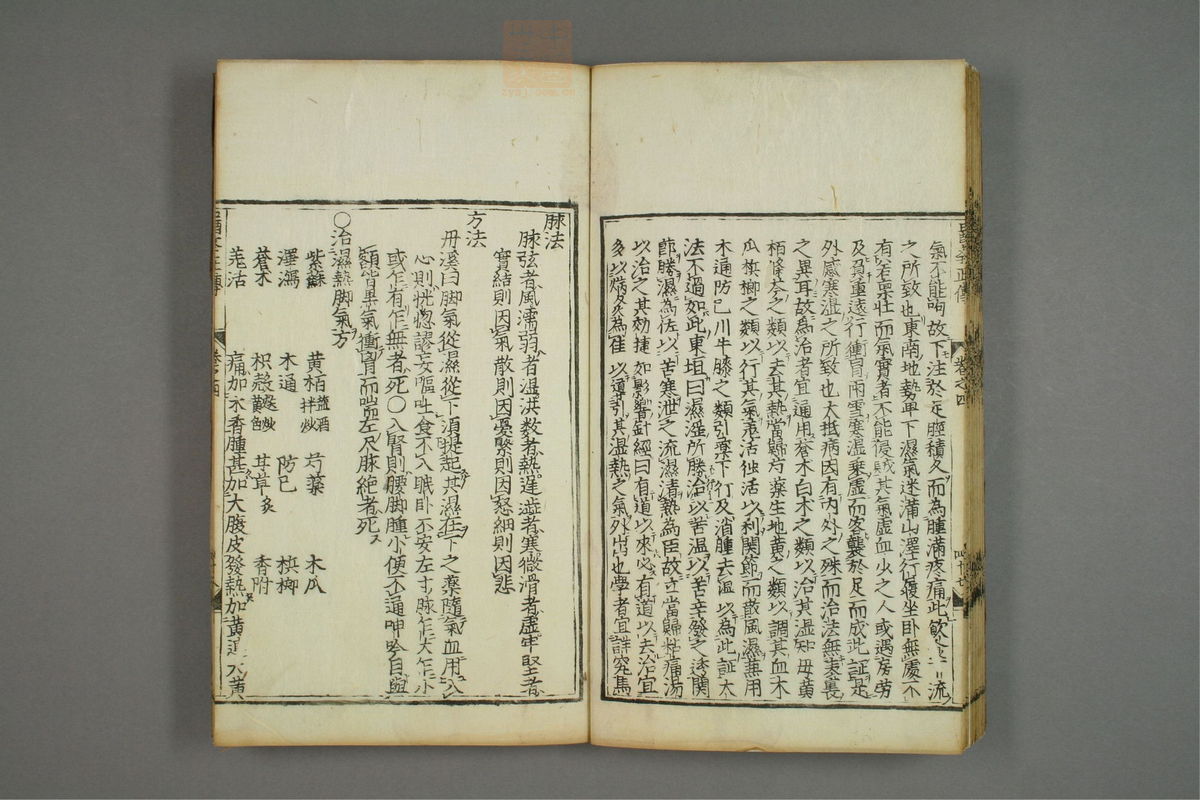 氣不能呴故下注於足脛積久而為腫滿疼痛此飲之流
之所致也東南地勢卑下濕氣迷滿山澤行履坐卧無處不
有若稟壯而氣實者不能侵或其氣虛血少之人或遇房勞
及負重遠行衝冒雨雪寒濕乘虛而客襲於足而成此証是
外感寒溫之所致也大抵病因有內外之殊而治法無表裏
之異耳故為治者宜通用蒼木白木之類以治其溫知母黄
栢條芩之類以去其熱當歸芍藥生地黄之類以調其血木
瓜檳榔之類以行其氣羌活独活以利関節而散風濕兼用
木通防己川牛膝之類引藥下行及消腫去溫以為此証大
法不過如此東垣曰濕滛所勝治以苦温以苦辛發之透関
節勝濕為佐以苦寒泄之流濕清熱為臣故立當歸拈痛湯
以治之其効捷如影響針經曰有道以來必有道以去治宜
多以為佳以導引其温熱之氣外出也學者宜詳究焉
脉法
脉弦者風濡弱者温洪数者熱遲澁者寒微滑者虛牢堅者
實結則因氣散則因憂緊則因怒細則因悲
方法
丹溪曰脚氣從濕從下須提起其濕在下之藥隨氣血用入
心則恍惚謬妄嘔吐食不入眠卧不安左寸脉乍大乍小
或乍有乍無者死○入腎則腰脚腫小便不通呻吟目與
額皆黒氣衝胷而喘左尺脉絶者死
○治濕熱脚氣方
紫蘇 黄栢塩酒拌炒 芍藥 木瓜
澤瀉 木通 防己 檳榔
蒼术 枳殻麩炒黄色 甘草炙 香附
羗活 痛加木香腫甚加大腹皮發熱加黄連大黄